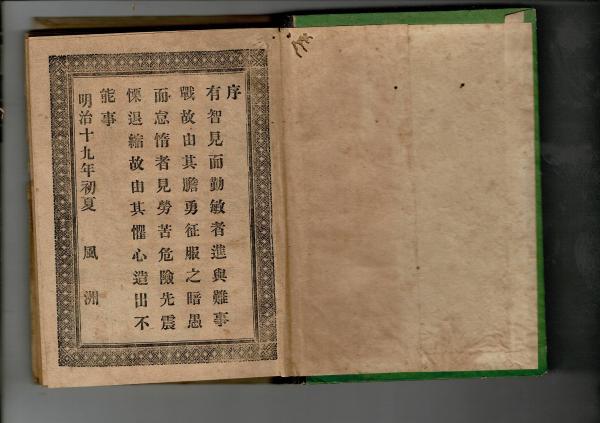 序
有智見而勤敏者進與難事
戰故由其膽勇征服之暗愚
而怠惰者見勞苦危險先震
慄退縮故由其懼心造出不
能事
明治十九年初夏　風洲